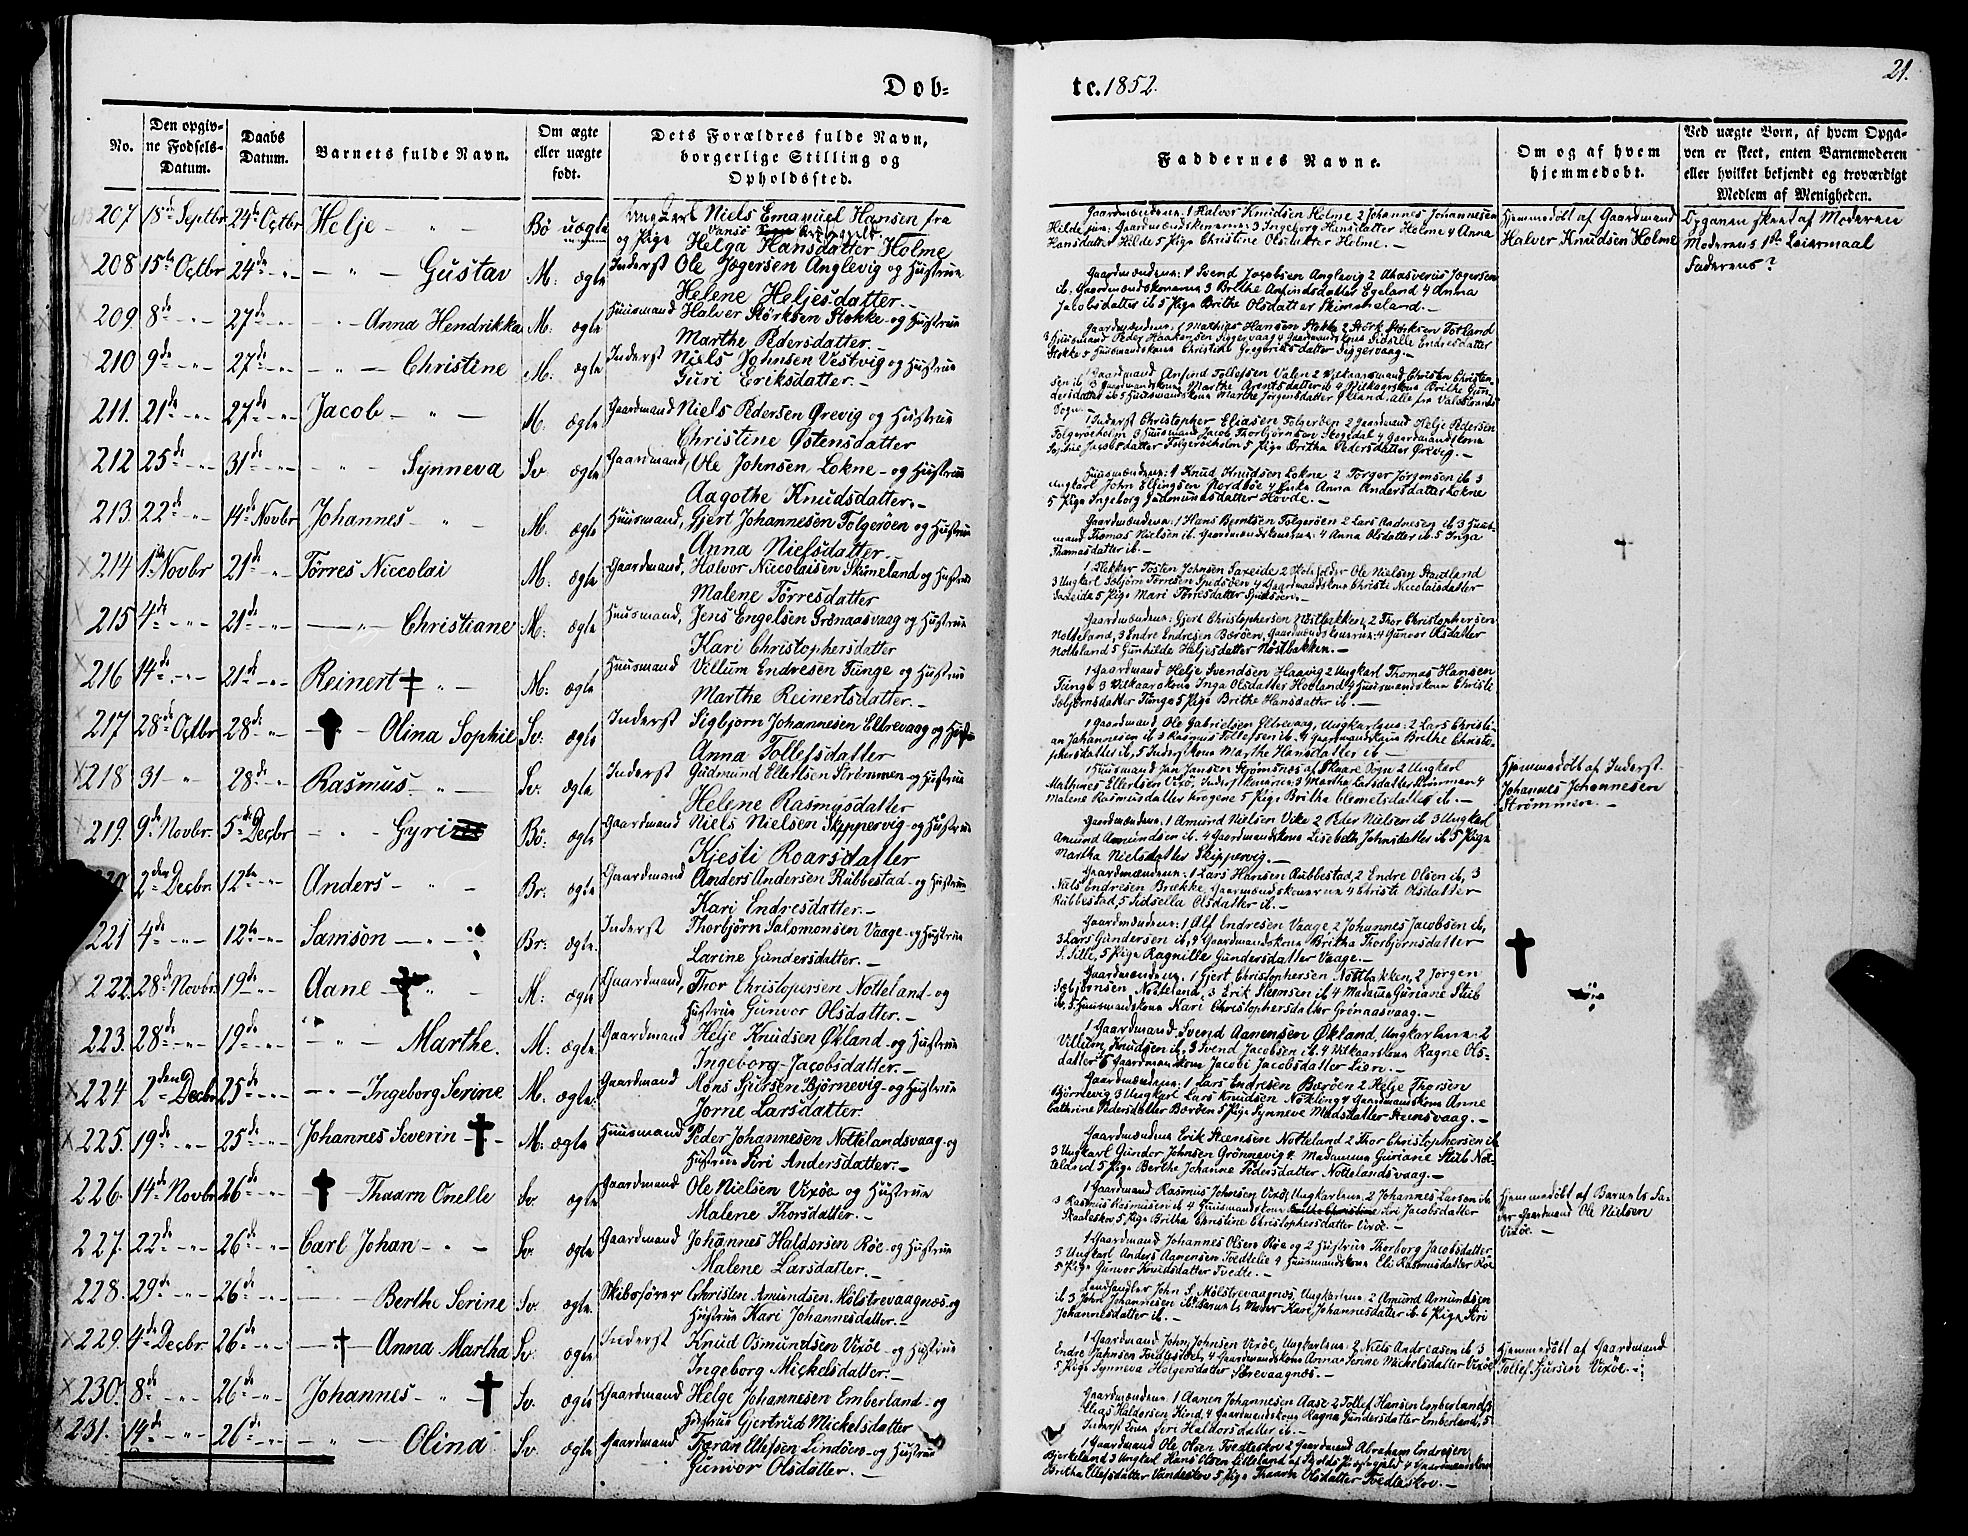 Dob=
te. 1852.
21.
No.
Den opgiv-
ne Fødsels-
Datum.
Daabs
Datum.
Barnets fulde Navn.
Om ægte
eller uægte
født.
Dets Forældres fulde Navn,
borgerlige Stilling og
Opholdssted.
Faddernes Navne.
Om og af hvem
hjemmedøbt.
Ved uægte Børn, af hvem Opga-
ven er skeet, enten Barnemoderen
eller hvilket bekjendt og troværdigt
Medlem af Menigheden.
207 18de Septbr 24de Octbr Helje - " - Bø uægte Ungkarl Niels Emanuel Hansen fra
og Pige Helga Hansdatter Holme
208 15de Octbr 24de - " - - " - Gustav M: ægte Inderst Ole Jøgersen Anglevig og Hustrue
Helene Heljesdatter. -
209 8de - " - 27de - " - - " - Anna Hendrikka M: ægte Huusmand Halver Størksen Stokke og Hustrue
Marthe Pedersdatter. -
210 9de - " - 27de - " - - " - Christine M: ægte Inderst Niels Johnsen Vestvig og Hustrue
Guri Eriksdatter. -
211. 21de - " - 27de - " - Jacob - " - M: ægte Gaardmand Niels Pedersen Ørevig og Hustrue
Christine Østensdatter
212 25de - " - 31de - " - - " - Synneva Sv: ægte Gaardmand, Ole Johnsen Lokne - og Hustrue
Aagothe Knudsdatter. -
213. 22de - " - 14de Novbr Johannes - " - M: ægte Huusmand, Gjert Johannesen Folgerøen og Hustrue
Anna Nielsdatter.
214 1ste Novbr 21de - " - Tørres Niccolai M: ægte Gaardmand, Halvor Niccolaisen Skimeland og Hustrue
Malene Tørresdatter
215 4de - " - 21de - " - - " - Christiane M: ægte Huusmand, Jens Engelsen Grønaasvaag og Hustrue
Kari Christophersdatter
216 14de - " - 21de - " - Reinert - " - M: ægte Huusmand Villum Endresen Tunge og Hustrue
Marthe Reinertsdatter. -
217. 28de Octbr 28de - " - Olina Sophie Sv: ægte Inderst Sigbjørn Johannesen Eltrevaag og Hustrue
Anna Tollefsdatter
218 31 - " 28de - " - Rasmus - " - Sv: ægte Inderst Gudmund Ellertsen Strømmen - og Hustrue
Helene Rasmusdatter
219. 9de Novbr. 5te Decbr - " - Gyri Br: ægte Gaardmand Niels Nielsen Skippervig - og Hustrue
Kjesti Roarsdatter
220 2den Decbr. 12te - " - Anders - " - Br: ægte Gaardmand Anders Andersen Rubbestad - og Hustrue
Kari Endresdatter. -
221 4de - " - 12te - " - Samson - " - Br: ægte. Inderst Thorbjørn Salomonsen Vaage - og Hustrue
Larine Gundersdatter. -
222. 28de Novbr 19de - " - Aane - " - M: ægte Gaardmand, Thor Christopersen Notteland - og
Hustrue Gunvor Olsdatter. -
223. 28de - " - 19de - " - - " - Marthe. M: ægte. Gaardmand Helje Knudsen Økland - og Hustrue
Ingeborg Jacobsdatter. -
224 2den Decbr 25de - " - - " - Ingeborg Serine M: ægte. Gaardmand Mons Sjursen Bjørnevig - og Hustrue
Jorne Larsdatter
225. 19de - " - 25de - " - Johannes Severin - M: ægte Huusmand Peder Johannesen Nottelandsvaag - og
Hustrue Siri Andersdatter. -
226. 14de Novbr 26de - " - Thaarn Onelle Sv: ægte Gaardmand Ole Nielsen Vixøe og Hustrue
Malene Thorsdatter. -
227. 22de - " - 26de - " - Carl Johan - " - Sv: ægte Gaardmand Johannes Haldorsen Røe - og Hustrue
Malene Larsdatter. -
228. 29de - " - 26de - " - - " - Berthe Serine Sv: ægte. Skibsfører Christen Amundsen Mølstrevaagnæs. og
Hustrue Kari Johannesdatter. -
229. 4de Decbr 26de - " - Anna Martha Sv: ægte Inderst Knud Osmundsen Vixøe - og Hustrue
Ingeborg Mickelsdatter. -
230. 8de - " - 26de - " - Johannes - " - Sv: ægte Gaardmand Helge Johannesen Emberland - og
Hustrue Gjertrud Mickelsdatter
231. 14de - " - 26de - " - - " - Olina Sv: ægte Gaardmand Taran Ellefsen Lindøen - og Hustrue
Gunvor Olsdatter. -
Gaardmændene: 1 Halvor Knudsen Holme 2 Johannes Johannesen
Hilde, Gaardmandskonerne: 3 Ingeborg Hansdatter Holme 4 Anna
Hansdatter Hilde 5 Pige Christine Olsdatter Holme. -
Hjemmedøbt af Gaardmand
Halver Knudsen Holme
Opgaven skeed af Moderen
Moderens 1ste Leiermaal
Faderens?
Gaardmændene: 1 Svend Jacobsen Anglevig 2 Ahasverus Jøgersen
ib. Gaardmandskonerne 3 Brithe Arfindsdatter Egeland 4 Anna
Jacobsdatter ib 5 Pige Brithe Olsdatter Skimmeland. -
Gaardmændene: 1 Mathias Hansen Stokke 2 Størk Størksen Totland
3 Huusmand Peder Haakensen Siggervaag 4 Gaardmandskone Sidsille Endresdatter
Stokke 5 Huusmandskone Christine Gregoriusdatter Siggervaag. -
1 Gaardmand Anfind Tollefsen Valen 2 Vilkaarsmand Christen Christen-
sen ib 3 Gaardmandskone Marthe Arentsdatter ib 4 Vilkaarskone Brithe Gun-
dersdatter ib 5 Huusmandskone Marthe Jørgensdatter Øeland, alle fra Valestrands
Sogn. -
1 Inderst Christopher Eliasen Folgerøen 2 Gaardmand Helje Pedersen
Folgerøeholm 3 Huusmand Jacob Thorbjørnsen Stegedal 4 Gaardmandskone
Sophie Jacobsdatter Folgerøeholm 5 Pige Britha Pedersdatter Ørevig. -
Huusmændene: 1 Knud Knudsen Lokne 2 Torger Jørgensen ib 3
Ungkarl John Ellingsen Nordbøe 4 Enke Anna Andersdatter Lokne
5 Pige Ingeborg Gudmundsdatter Hovde. -
Gaardmændene: 1 Hans Berntsen Folgerøen 2 Lars Aadnesen ib 3 Huus-
mand Thomas Nielsen ib. Gaardmandskonerne: 4 Anna Olsdatter ib. 5 Inga
Thomasdatter ib. -
1 Tosten Johnsen Saxeide 2 Ole Nielsen Stautland
3 Ungkarl Sæbjørn Torresen Spidsøen 4 Gaardmandskone Christi Nicolaisdatter
Saxeide 5 Pige Mari Torresdatter Spidsøen. -
Gaardmændene: Gjert Christophersen Nøstbakken, 2 Thor Christophersen
Notteland, 3 Endre Endresen Børøen, Gaardmandskonerne: 4 Gunvor Olsdatter
Notteland 5 Gunhilde Heljesdatter Nøstbakken. -
1 Gaardmand Helje Svendsen Haavig 2 Ungkarl Thomas Hansen
Tunge 3 Vilkaarskone Inga Olsdatter Hovland 4 Huusmandskone Christi
Sæbjørnsdatter Tunge 5 Pige Brithe Hansdatter ib. -
1 Gaardmand Ole Gabrielsen Eltrevaag, Ungkarlene: 2 Lars Christi-
an Johannesen ib 3 Rasmus Tollefsen ib. 4 Gaardmandskone Brithe Christo-
phersdatter ib, 5 Inderstkone Marthe Hansdatter ib -
1 Huusmand Jan Jansen Strømsnæs af Skaare Sogn 2 Ungkarl
Mathines Ellertsen Vixø, Inderstkonerne: 3 Martha Larsdatter Strømmen 4
Malene Rasmusdatter Krogene 5 Pige Britha Clemetsdatter ib. -
Hjemmedøbt af Inderst
Johannes Johannesen
Strømmen. -
Gaardmændene: 1 Amund Nielsen Vike 2 Peder Nielsen ib 3 Ungkarl
Amund Amundsen ib. 4 Gaardmandskone Lisebeth Johnsdatter ib 5 Pige
Martha Nielsdatter Skippervig. -
Gaardmændene: 1 Lars Hansen Rubbestad, 2 Endre Olsen ib, 3
Niels Endresen Brække, Gaardmandskonerne 4 Christi Olsdatter
Rubbestad, 5 Sidsella Olsdatter ib. -
Gaardmændene: 1 Olf Endresen Vaage 2 Johannes Jacobsen ib,
3 Lars Gundersen ib, 4 Gaardmandskone Britha Thorbjørnsdatter
S. Sille, 5 Pige Ragnille Gundersdatter Vaage. -
Gaardmændene, 1 Gjert Christophersen Nøstbakken, 2 Jørgen
Sæbjørnsen Notteland, 3 Erik Steensen ib 4 Madame Guriane Stub
ib. 5 Huusmandskone Kari Christophersdatter Grønaasvaag. -
1 Gaardmand Svend Aamensen Økland, Ungkarlene: 2
Villum Knudsen ib, 3 Svend Jacobsen ib. 4 Vilkaarskone Ragne Ols-
datter 5 Gaardmandskone Jacobi Jacobsdatter Lien. -
Gaardmændene: 1 Lars Endresen Børøen 2 Helje Thorsen
Bjørnevig 3 Ungkarl Lars Knudsen Nøkling 4 Gaardmandskone Anne
Cathrine Pedersdatter Børøen 5 Pige Synneve Madsdatter Steensvaag. -
Gaardmændene Erik Steensen Notteland 2 Thor Christophersen ib
3 Ungkarl Gunder Johnsen Grønnevig 4. Madamme Guriane Stub Not-
teland 5 Pige Berthe Johanne Pedersdatter Nottelandsvaag. -
1 Gaardmand Rasmus Johnsen Vixø, Ungkarlene: 2 Johannes Larsen ib.
3 Rasmus Rasmusen ib 4 Huusmandskone Siri Jacobsdatter
Skaaleskov 5 Pige Britha Christine Christophersdatter Vixøe. -
Hjemmedøbt af Barnets Fa-
der Gaardmand Ole Nielsen
Vixøe. -
1 Gaardmand Johannes Olsen Røe og 2 Hustrue Thorborg Jacobsdatter,
3 Ungkarl Anders Aamensen Tvedtelie 4 Huusmandskone Eli Rasmusdatter Røe
5 Pige Gunvor Knudsdatter Tvedte. -
1 Landhandler John S. Mølstrevaagnæs, Ungkarlene: 2 Amund Amundsen
ib 3 John Johannesen ib. Barnets Moder Kari Johannesdatter ib 6 Pige Siri
Johannesdatter ib. -
1 Gaardmand John Johnsen Vixøe, Ungkarlene: 2 Niels Andreasen ib 3
Endre Jahnsen 4 Gaardmandskone Anna Serine Mickelsdatter Vixøe
5 Pige Synneva Holgersdatter Særevaagnæs. -
Hjemmedøbt af Gaardmand
Tollef Sjursen Vixøe. -
Gaardmændene: 1 Aanen Johannesen Aase 2 Tollef Hansen Emberland 3
Elias Haldorsen Kind, 4 Gaardmandskone Ragna Gundersdatter Emberland, 5
Inderst Kone Siri Haldorsdatter ib. -
1 Gaardmand Ole Olsen Tvedteskov 2 Gaardmand Abraham Endresen
Bjerkeland 3 Ungkarl Hans Olsen Litteland af Fjelds Præstegjeld 4 Gaardmandskone
Britha Ellefsdatter Vandeskov 5 Pige Thaarn Olsdatter Tvedteskov. -